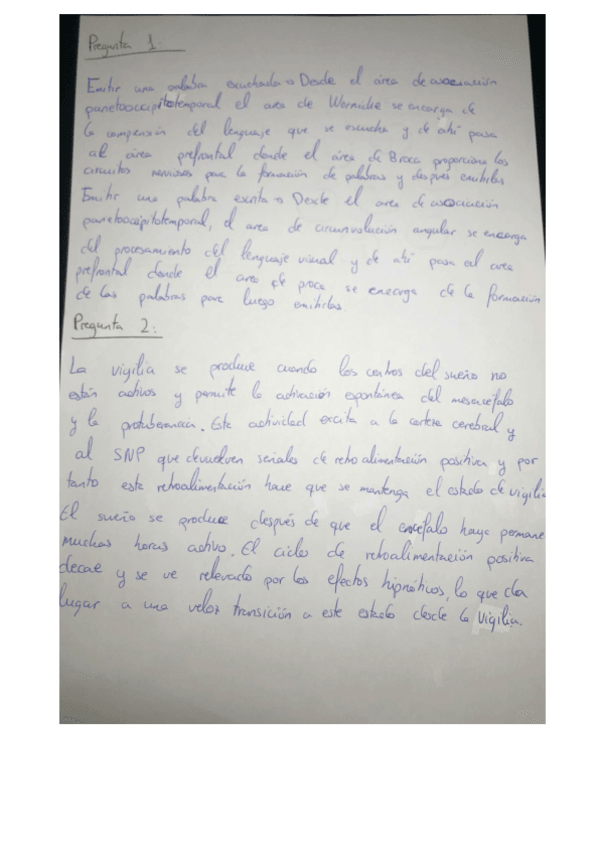 Pregunta 1:
Emitir una palabra escuchada → Desde el área de asociación
parietooccipitotemporal el area de Wernicke se encarga de
la compensión del lenguaje que se escucha y de ahí pasa
al área prefrontal donde el área de Broca proporciona los
circuitos nerviosos para la formación de palabras y después emitirlas
Emitir una palabra escrita → Desde el area de asociación
parietooccipitotemporal, el area de circunvolución angular se encarga
del procesamiento del lenguaje visual y de ahí pasa al area
prefrontal donde el area de proca se encarga de la formación
de las palabras para luego emitirlas.
Pregunta 2:
La vigilia se produce cuando los centros del sueño no
están activos y permite la activación espontánea del mesencéfalo
y la protuberancia. Este actividad excita a la corteza cerebral y
al SNP que devuelven señales de retroalimentación positiva y por
tanto este retroalimentación hace que se mantenga el estado de vigilia
El sueño se produce después de que el encéfalo haya permane
muchas horas activo. El ciclo de retroalimentación positiva
decae y se ve relevado por los efectos hipnóticos, lo que da
lugar a una veloz transición a este estado desde la vigilia.